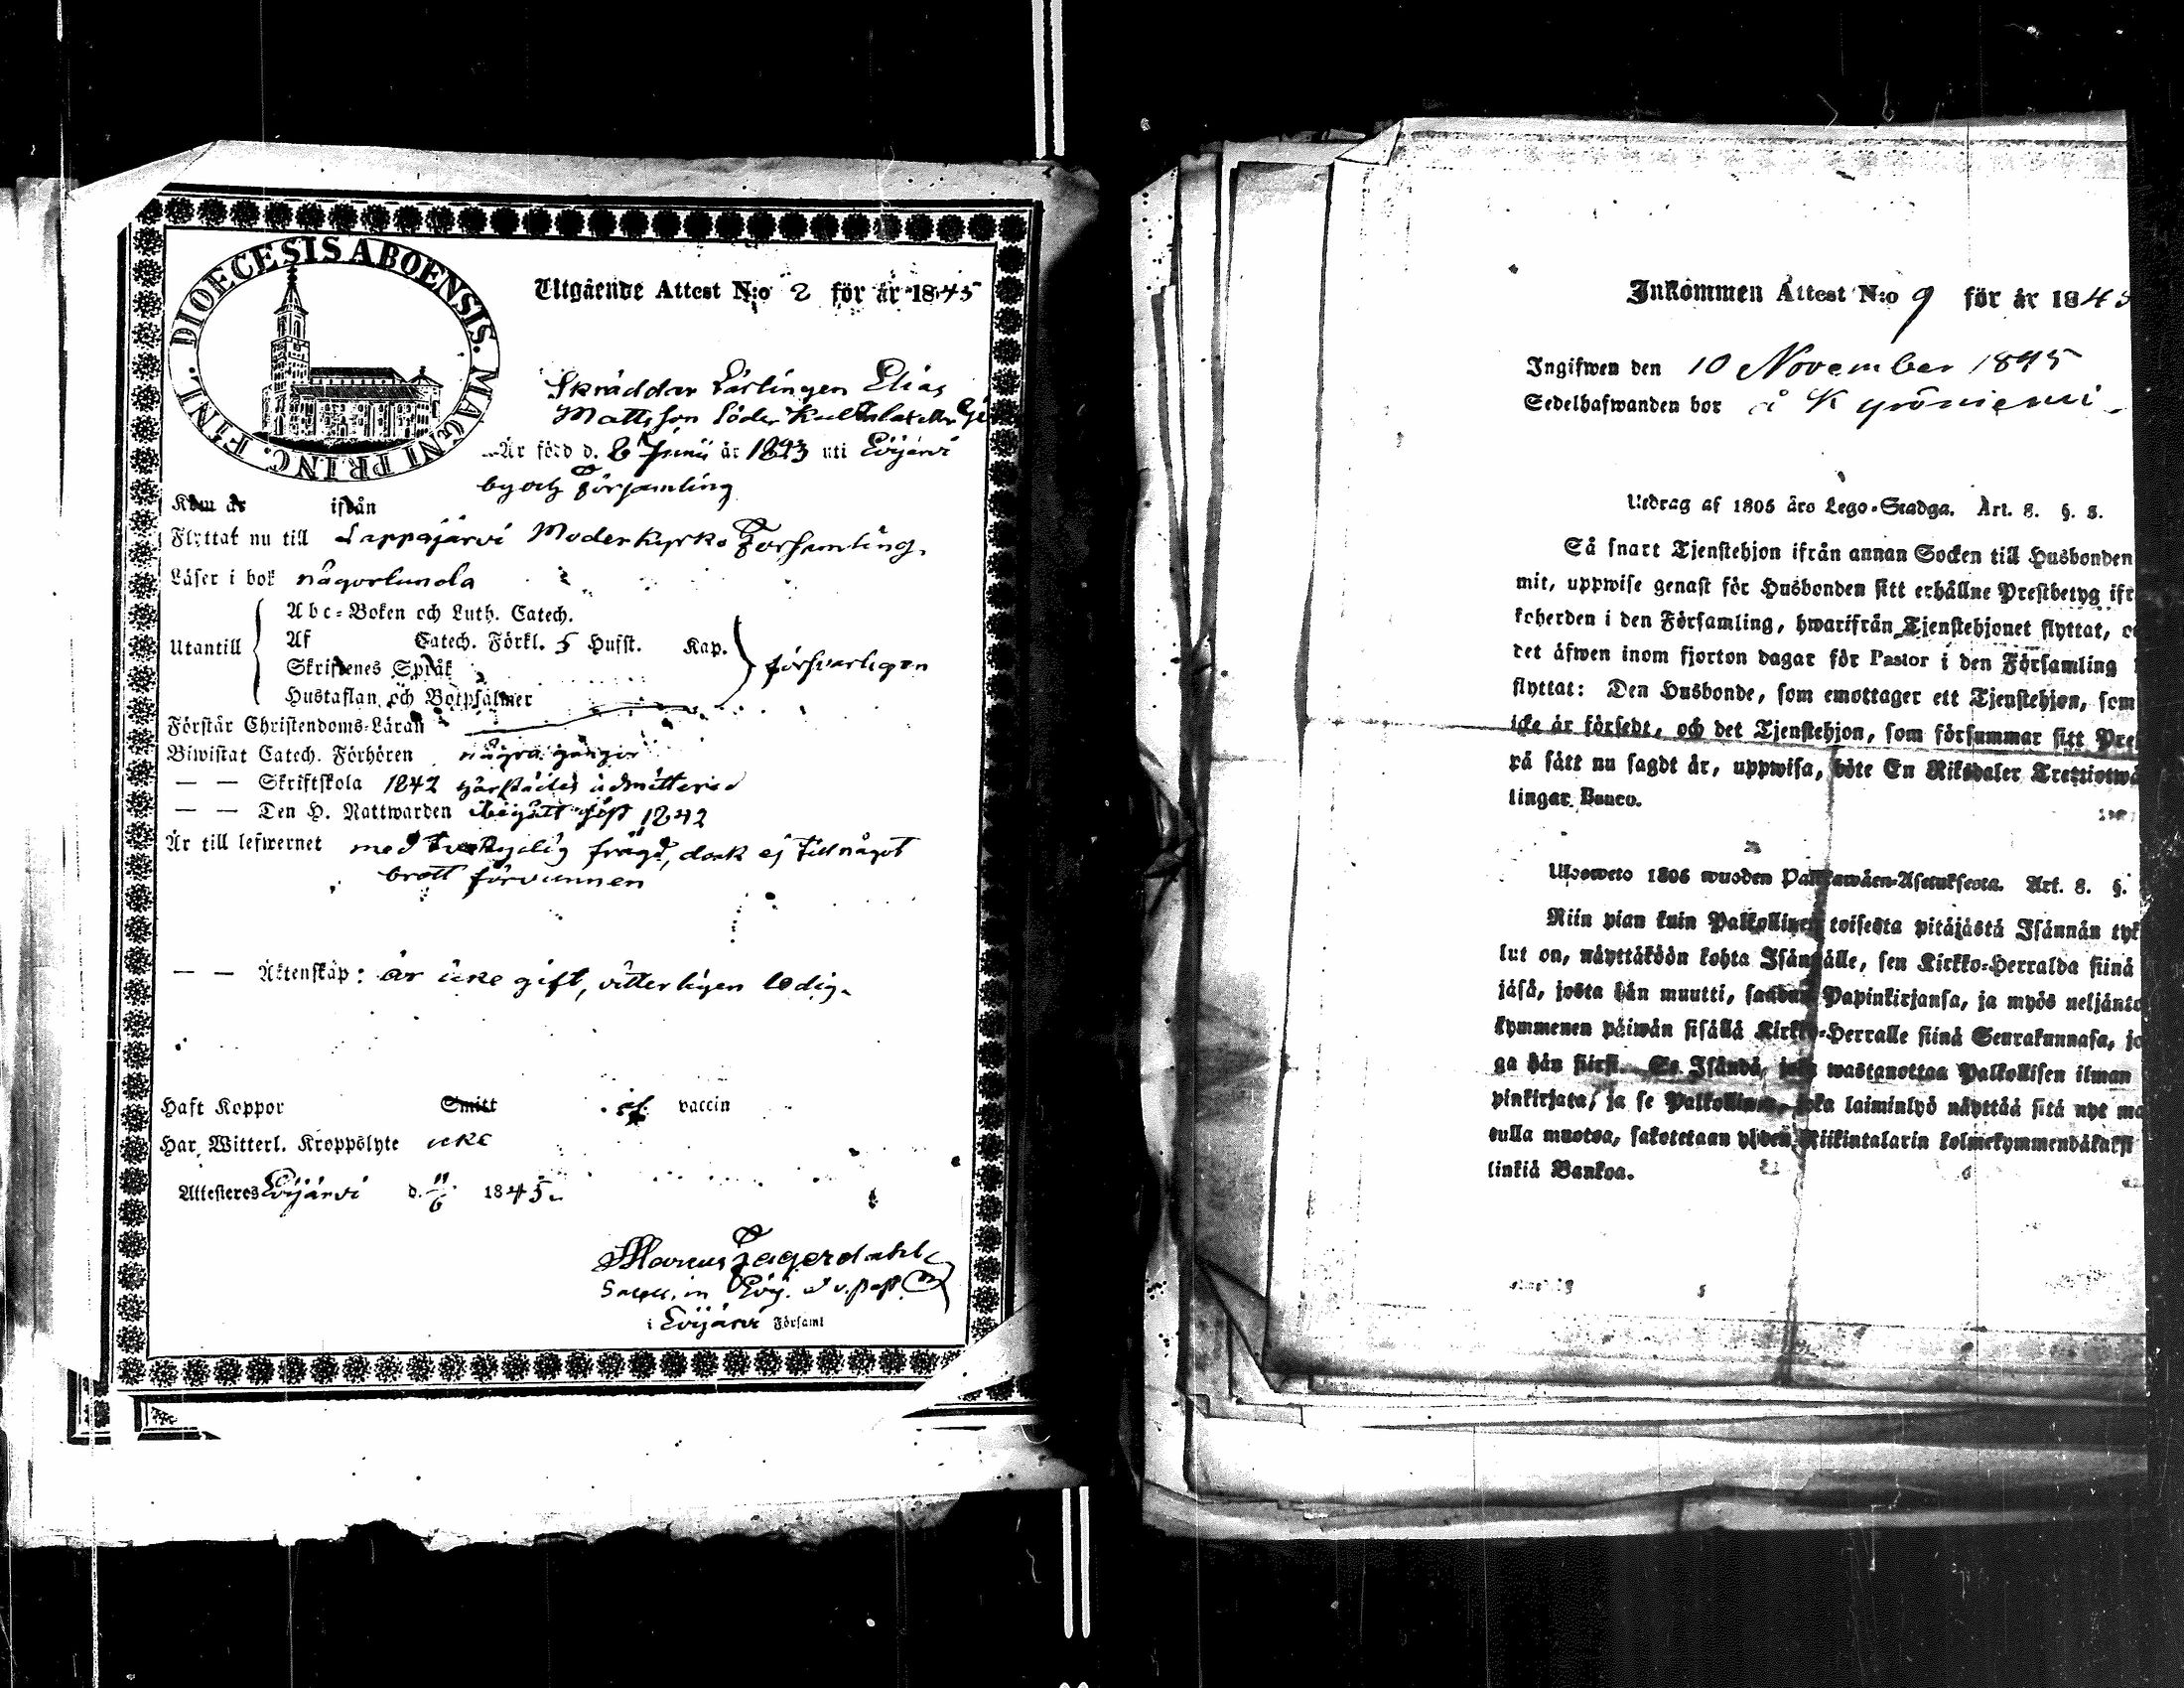 DIOECESIS ABOENSIS. MAGNI PRINC. FINL.
Utgående Attest N:o 2 för år 1845
Skräddar Lärlingen Elias
Mattsson Söder
Är född d. 8 Junii år 1823 uti Evijärvi
by och Församling
Kom år ifrån
Flyttat nu till Lappajärvi Moderkyrko Församling.
Läser i bok någorlunda
Utantill
Abc-Boken och Luth. Catech.
Af Catech. Förkl. 5 Hufst. Kap.
Skriftenes Språk
Hustaflan och Botpsalmer
försvarligen
Förstår Christendoms-Läran
Biwistat Catech. Förhören några gånger
— — Skriftskola 1842 härstädes admitterad
— — Den H. Nattwarden begått sist 1842
Är till lefwernet med frägd, dock ej till något
brott förvunnen
— — Äktenskap: är icke gift, vitterligen ledig.
Haft Koppor Smitt vaccin
Har Witterl. Kroppslyte icke
Attesteres Evijärvi d. 11/6 1845.
Marcus Fagerdahl
Sacell. in Evij. v. past.
i Evijärvi Församl
Inkommen Attest N:o 9 för år 1845
Ingifwen den 10 November 1845
Sedelhafwanden bor å Kyröniemi
Utdrag af 1805 års Lego-Stadga. Art. 8. §. 8.
Så snart Tjenstehjon ifrån annan Socken till Husbonden
mit, uppwise genast för Husbonden sitt erhållne Prestbetyg ifr
koherden i den Församling, hwarifrån Tjenstehjonet flyttat, o
det äfwen inom fjorton dagar för Pastor i den Församling
flyttat: Den Husbonde, som emottager ett Tjenstehjon, som
icke är försedt, och det Tjenstehjon, som försummar sitt Pre
på sätt nu sagdt är, uppwisa, böte En Riksdaler Trettiotwå
lingar Banco.
Ulosweto 1805 wuoden Palkkawäen-Asetuksesta. Art. 8. §.
Niin pian kuin Palkollinen toisesta pitäjästä Isännän tyk
lut on, näyttäköön kohta Isännälle, sen Kirkko-Herralda siinä
jäsä, josta hän muutti, saadun Papinkirjansa, ja myös neljänto
kymmenen päiwän sisällä Kirkko-Herralle siinä Seurakunnasa, jo
ga hän siirsi. Se Isändä, joka wastanottaa Palkollisen ilman
pinkirjata, ja se Palkollinen, joka laiminlyö näyttää sitä nyt ma
tulla muotoa, sakotetaan yhden Riikintalarin kolmekymmendäkaksi
linkiä Bankoa.